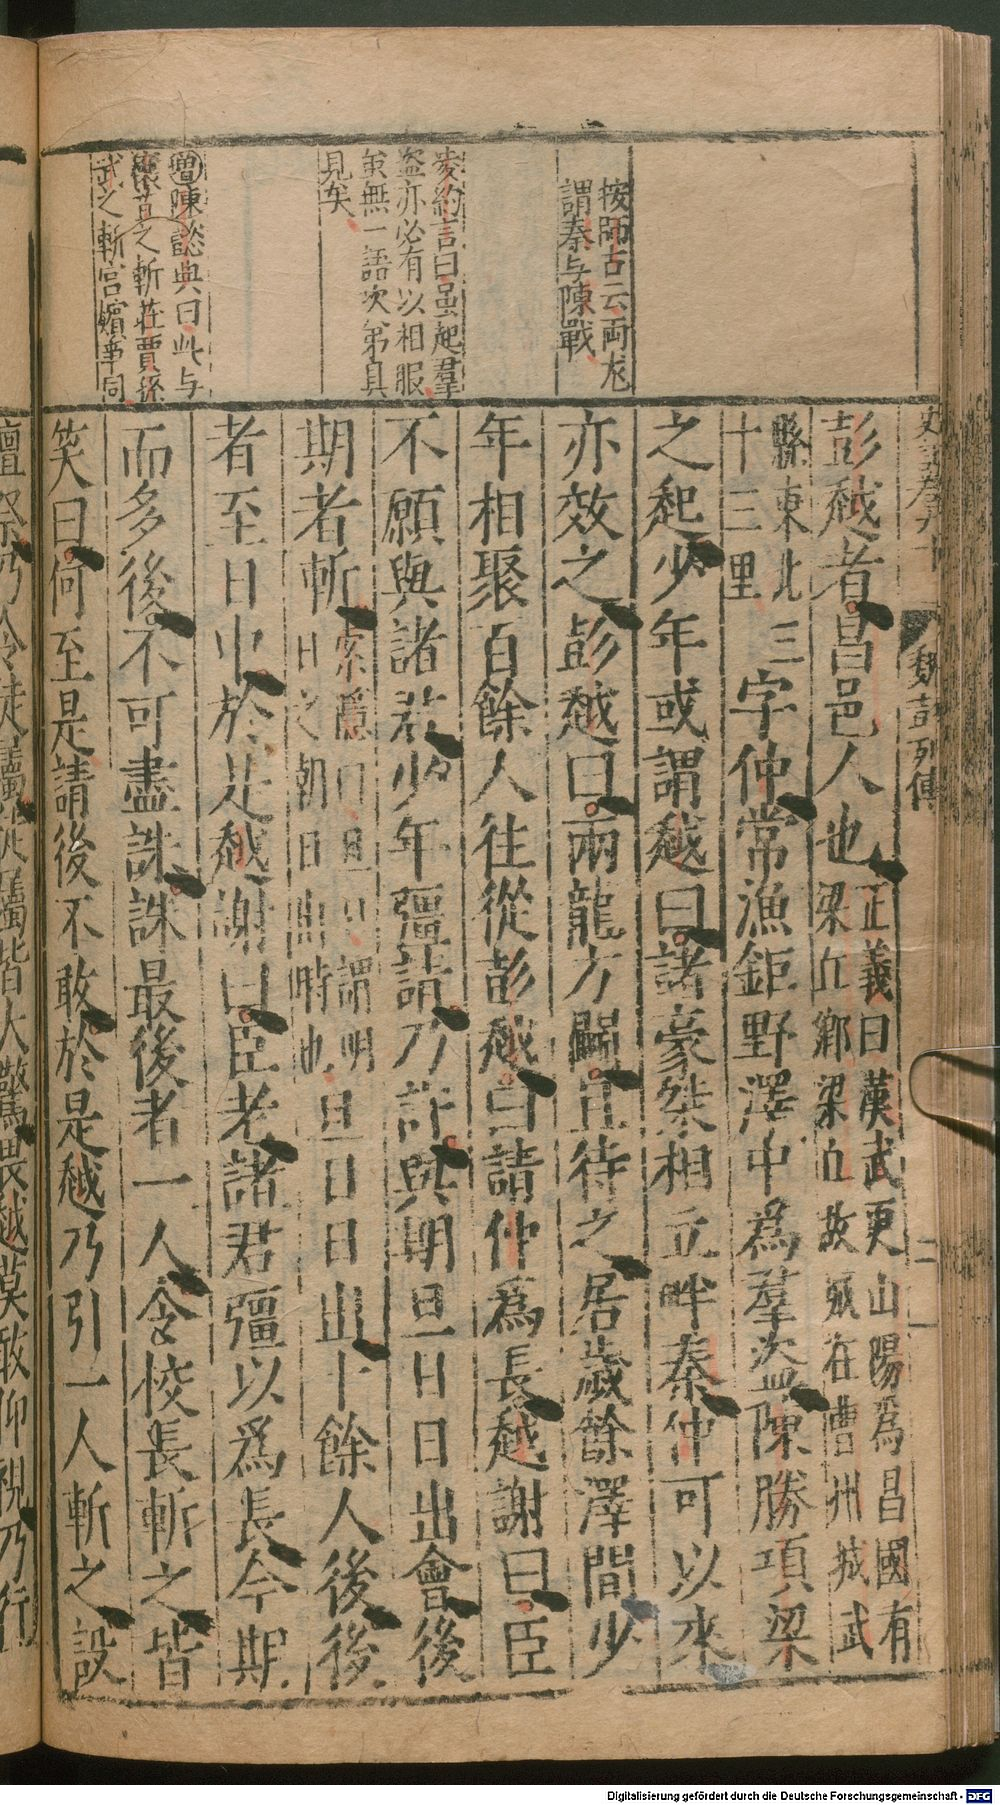 史記卷九十　魏彭列傳　二
按師古云兩龙
謂秦与陳戰
凌約言曰虽起羣
盗亦必有以相服
虽無一語次第具
見矣
增陳懿典曰此与
穰苴之斬莊賈孫
武之斬宮嬪事同
彭越者昌邑人也正義曰漢武更山陽爲昌國有
梁丘鄉梁丘故城在曹州城武
縣東北三
十三里字仲常漁鉅野澤中爲羣盗陳勝項梁
之起少年或謂越曰諸豪桀相立畔秦仲可以來
亦效之彭越曰兩龍方鬭且待之居歲餘澤間少
年相聚百餘人往從彭越曰請仲爲長越謝曰臣
不願與諸君少年彊請乃許與期旦日日出會後
期者斬索隱曰旦日謂明
日之朝日出時也旦日日出十餘人後後
者至日中於是越謝曰臣老諸君彊以爲長今期
而多後不可盡誅誅最後者一人令校長斬之皆
笑曰何至是請後不敢於是越乃引一人斬之設
壇祭乃令徒屬徒屬皆大驚畏越莫敢仰視乃行
Digitalisierung gefördert durch die Deutsche Forschungsgemeinschaft - DFG